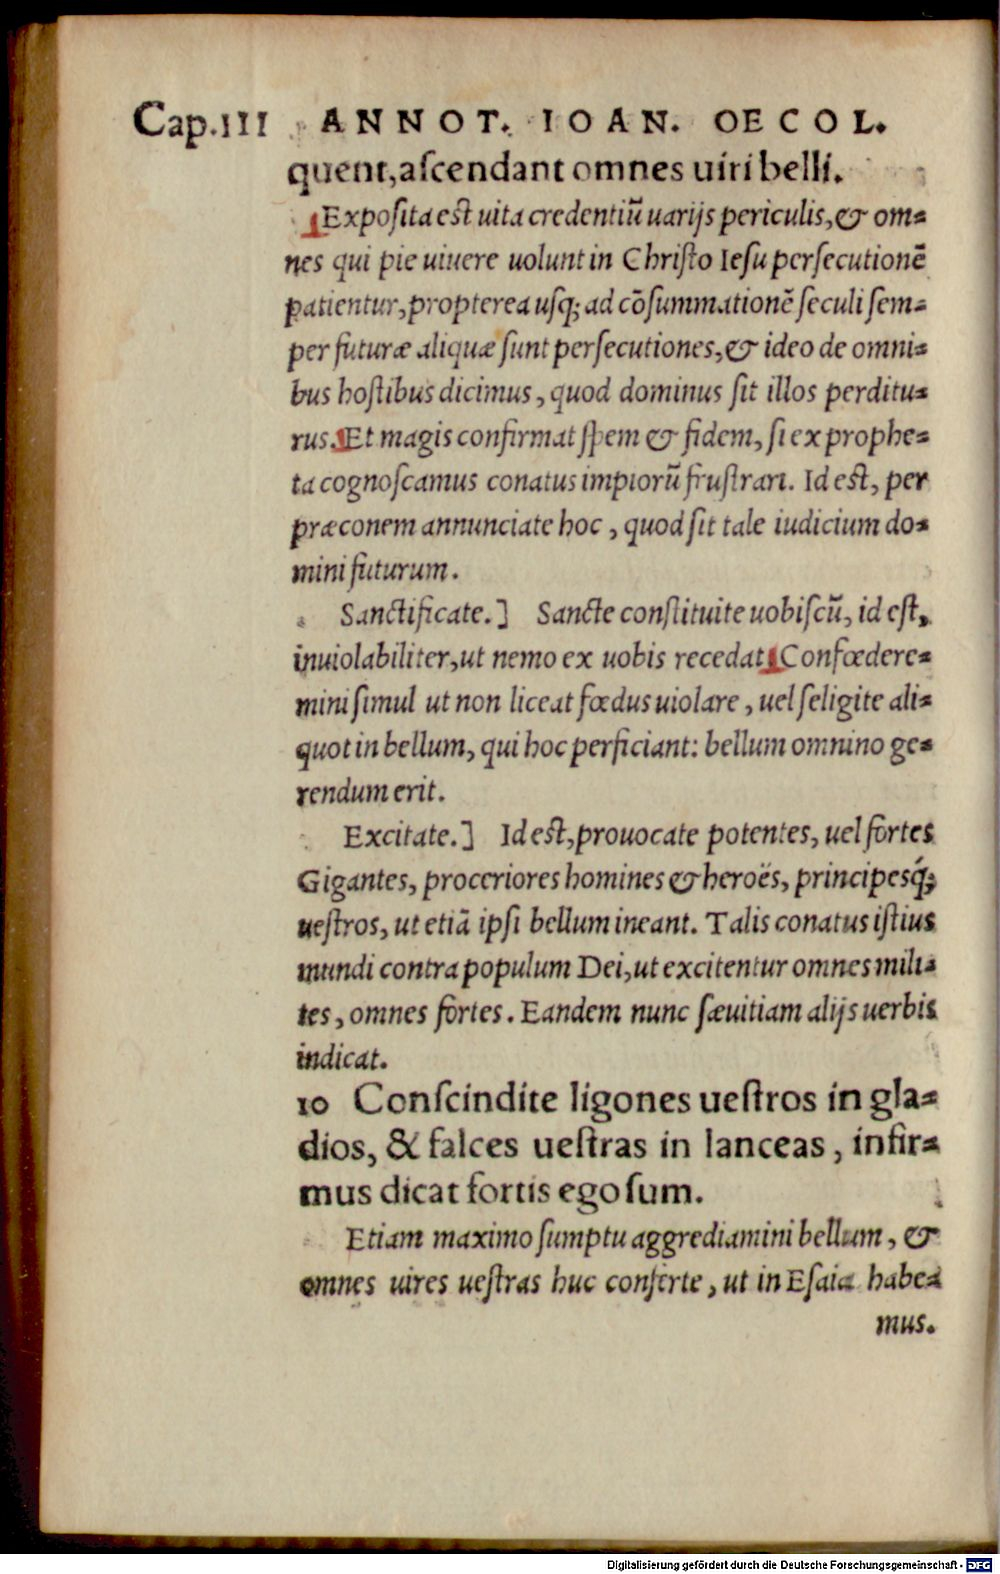 Cap.III ANNOT. IOAN. OECOL.
quent, ascendant omnes uiri belli.
Exposita est uita credentiũ uarijs periculis, & om=
nes qui pie uiuere uolunt in Christo Iesu persecutionẽ
patientur, propterea usq; ad cõsummationẽ seculi sem=
per futuræ aliquæ sunt persecutiones, & ideo de omni=
bus hostibus dicimus, quod dominus sit illos perditu=
rus. Et magis confirmat spem & fidem, si ex prophe=
ta cognoscamus conatus impiorũ frustrari. Id est, per
præconem annunciate hoc, quod sit tale iudicium do=
mini futurum.
Sanctificate.] Sancte constituite uobiscũ, id est,
inuiolabiliter, ut nemo ex uobis recedat. Confœdere=
mini simul ut non liceat fœdus uiolare, uel seligite ali=
quot in bellum, qui hoc perficiant: bellum omnino ge=
rendum erit.
Excitate.] Id est, prouocate potentes, uel fortes
Gigantes, proceriores homines & heroës, principesq́;
uestros, ut etiã ipsi bellum ineant. Talis conatus istius
mundi contra populum Dei, ut excitentur omnes mili=
tes, omnes fortes. Eandem nunc sæuitiam alijs uerbis
indicat.
10 Conscindite ligones uestros in gla=
dios, & falces uestras in lanceas, infir=
mus dicat fortis ego sum.
Etiam maximo sumptu aggrediamini bellum, &
omnes uires uestras huc conferte, ut in Esaia habe=
mus.
Digitalisierung gefördert durch die Deutsche Forschungsgemeinschaft - DFG